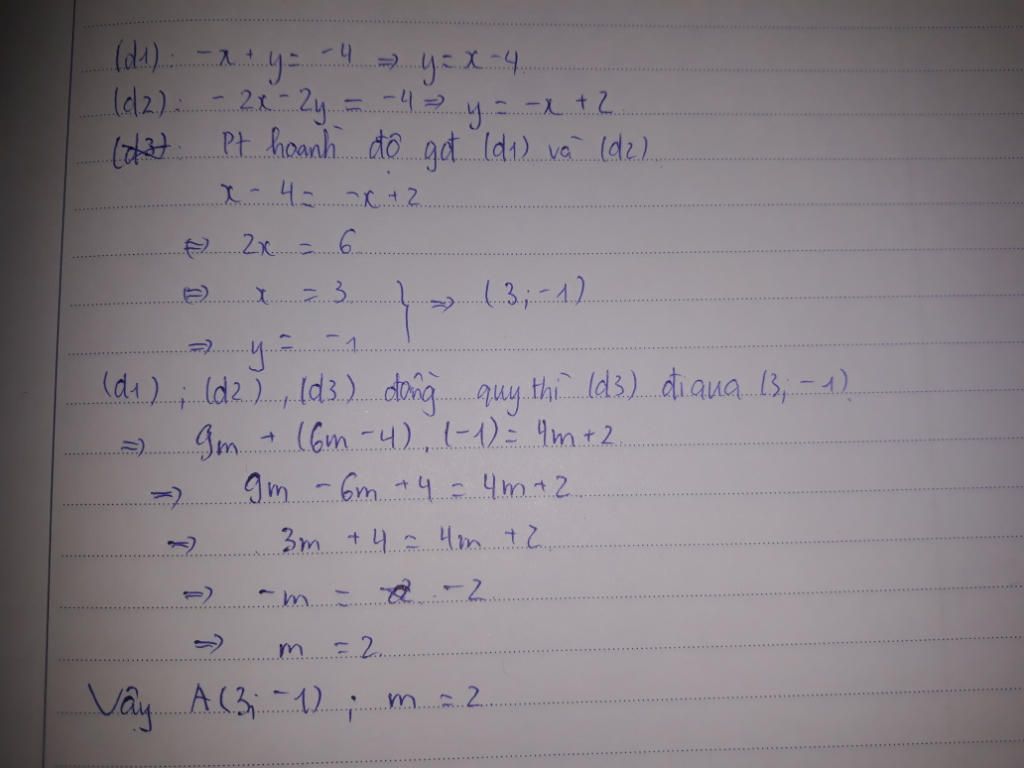 (d1): -x + y = -4 ⇒ y = x - 4
(d2): - 2x - 2y = -4 ⇒ y = -x + 2
Pt hoành độ gđ (d1) và (d2)
x - 4 = -x + 2
⇔ 2x = 6
⇔ x = 3 } ⇒ (3; -1)
⇒ y = -1
(d1); (d2), (d3) đồng quy thì (d3) đi qua (3; -1)
⇒ 9m + (6m - 4). (-1) = 4m + 2
⇒ 9m - 6m + 4 = 4m + 2
⇒ 3m + 4 = 4m + 2
⇒ -m = -2
⇒ m = 2
Vậy A(3; -1); m = 2